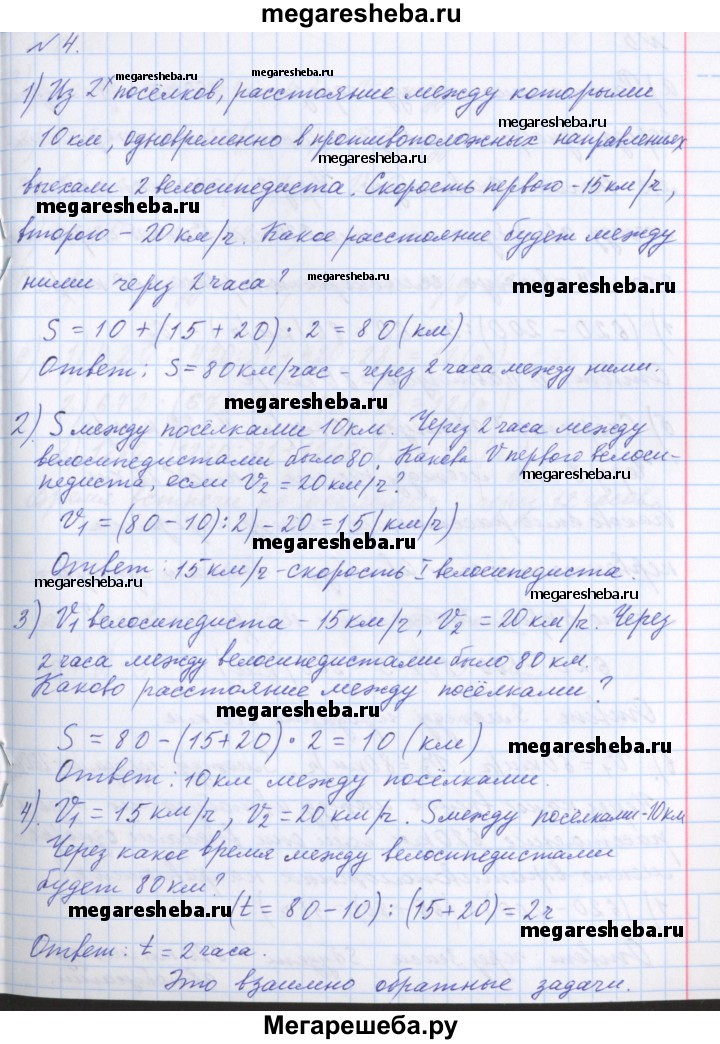 megaresheba.ru
№4.
megaresheba.ru
1) Из 2х посёлков, расстояние между которыми
10 км, одновременно в противоположных направлениях
megaresheba.ru
выехали 2 велосипедиста. Скорость первого - 15 км/ч,
megaresheba.ru
второго - 20 км/ч. Какое расстояние будет между
ними через 2 часа?
megaresheba.ru
megaresheba.ru
S = 10 + (15 + 20) · 2 = 80 (км)
Ответ: S = 80 км/час - через 2 часа между ними.
megaresheba.ru
2) S между посёлками 10 км. Через 2 часа между
велосипедистами было 80. Какова V первого велоси-
megaresheba.ru
педиста, если V2 = 20 км/ч?
V1 = (80 - 10) : 2) - 20 = 15 (км/ч)
megaresheba.ru
Ответ: 15 км/ч - скорость I велосипедиста.
megaresheba.ru
megaresheba.ru
3) V1 велосипедиста - 15 км/ч, V2 = 20 км/ч. Через
2 часа между велосипедистами было 80 км.
Каково расстояние между посёлками?
megaresheba.ru
S = 80 - (15 + 20) · 2 = 10 (км)
megaresheba.ru
Ответ: 10 км между посёлками.
4). V1 = 15 км/ч, V2 = 20 км/ч. S между посёлками - 10 км
Через какое время между велосипедистами
будет 80 км?
megaresheba.ru
(t = 80 - 10) : (15 + 20) = 2 ч
megaresheba.ru
Ответ: t = 2 часа.
Это взаимно обратные задачи.
Мегарешеба.ру